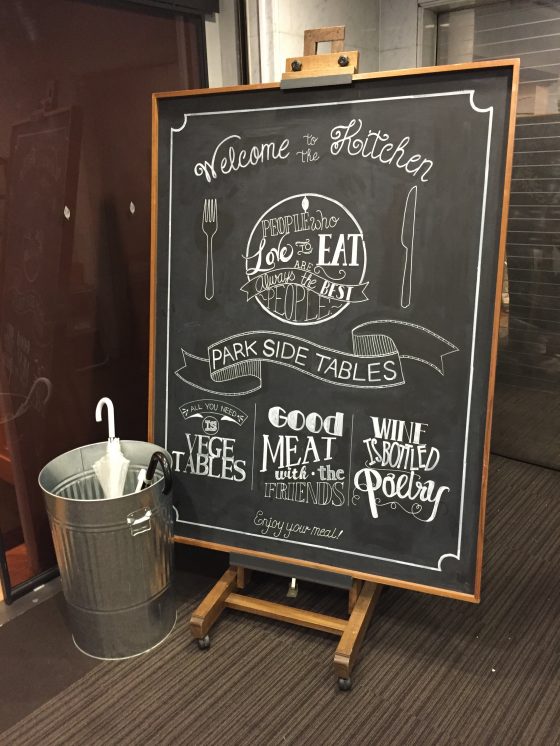 Welcome to the Kitchen
PEOPLE who
Love TO EAT
ARE
Always the BEST
PEOPLE
PARK SIDE TABLES
ALL YOU NEED
IS
VEGE
TABLES
GOOD
MEAT
with · the
FRIENDS
WINE
IS BOTTLED
Poetry
Enjoy your meal!